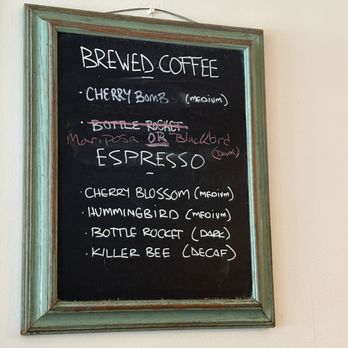 BREWED COFFEE
· CHERRY BOMB (MEDIUM)
· BOTTLE ROCKET
Mariposa OR Blackbird
(DARK)
ESPRESSO
-
· CHERRY BLOSSOM (MEDIUM)
· HUMMINGBIRD (MEDIUM)
· BOTTLE ROCKET (DARK)
· KILLER BEE (DECAF)